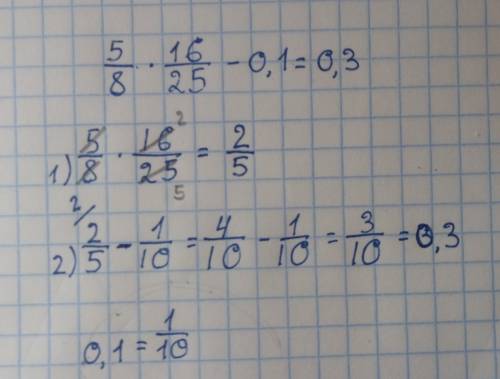 5/8 · 16/25 - 0,1 = 0,3
1) 5/8 · 16/25 = 2/5
2 5
2) 2/ 2/5 - 1/10 = 4/10 - 1/10 = 3/10 = 0,3
0,1 = 1/10